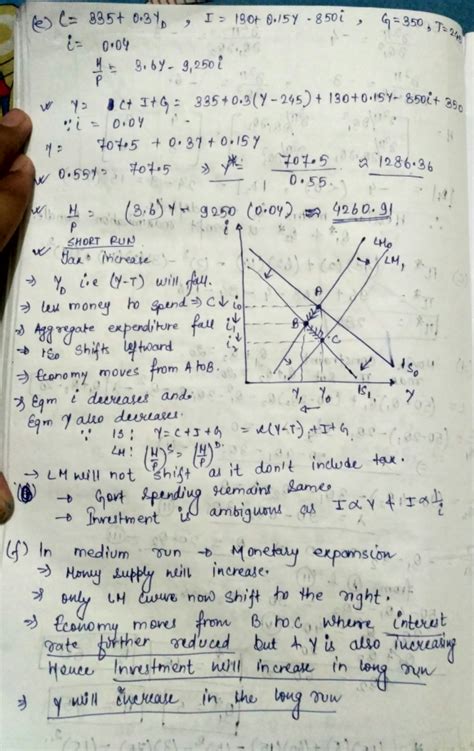 (e) C = 335 + 0.3Y_D , I = 130 + 0.15Y - 850i , G = 350, T = 245
i = 0.04
M/P = 3.6Y - 9,250i
Y = C + I + G = 335 + 0.3(Y - 245) + 130 + 0.15Y - 850i + 350
∵ i = 0.04
Y = 707.5 + 0.3Y + 0.15Y
0.55Y = 707.5 ⇒ Y* = 707.5/0.55 ≈ 1286.36
M/P = (3.6)Y - 9250 (0.04) ⇒ 4260.91
SHORT RUN
Tax Increase
⇒ Y_D i.e (Y-T) will fall.
⇒ less money to spend ⇒ C↓
⇒ Aggregate expenditure fall
⇒ IS0 shifts leftward
⇒ Economy moves from A to B.
⇒ Eqm i decreases and
Eqm Y also decreases.
i
LM0
LM1
A
B
C
IS0
IS1
Y1 Y0
Y
∵ IS: Y = C + I + G = c(Y-T) + I + G
LM: (M/P)^S = (M/P)^D
→ LM will not shift as it don't include tax.
→ Govt spending remains same.
→ Investment is ambiguous as I ∝ Y & I ∝ 1/i
(f) In medium run → Monetary expansion
⇒ Money supply will increase.
⇒ Only LM curve now shift to the right.
⇒ Economy moves from B to C, where interest
rate further reduced but Y is also increasing
Hence Investment will increase in long run
⇒ Y will increase in the long run